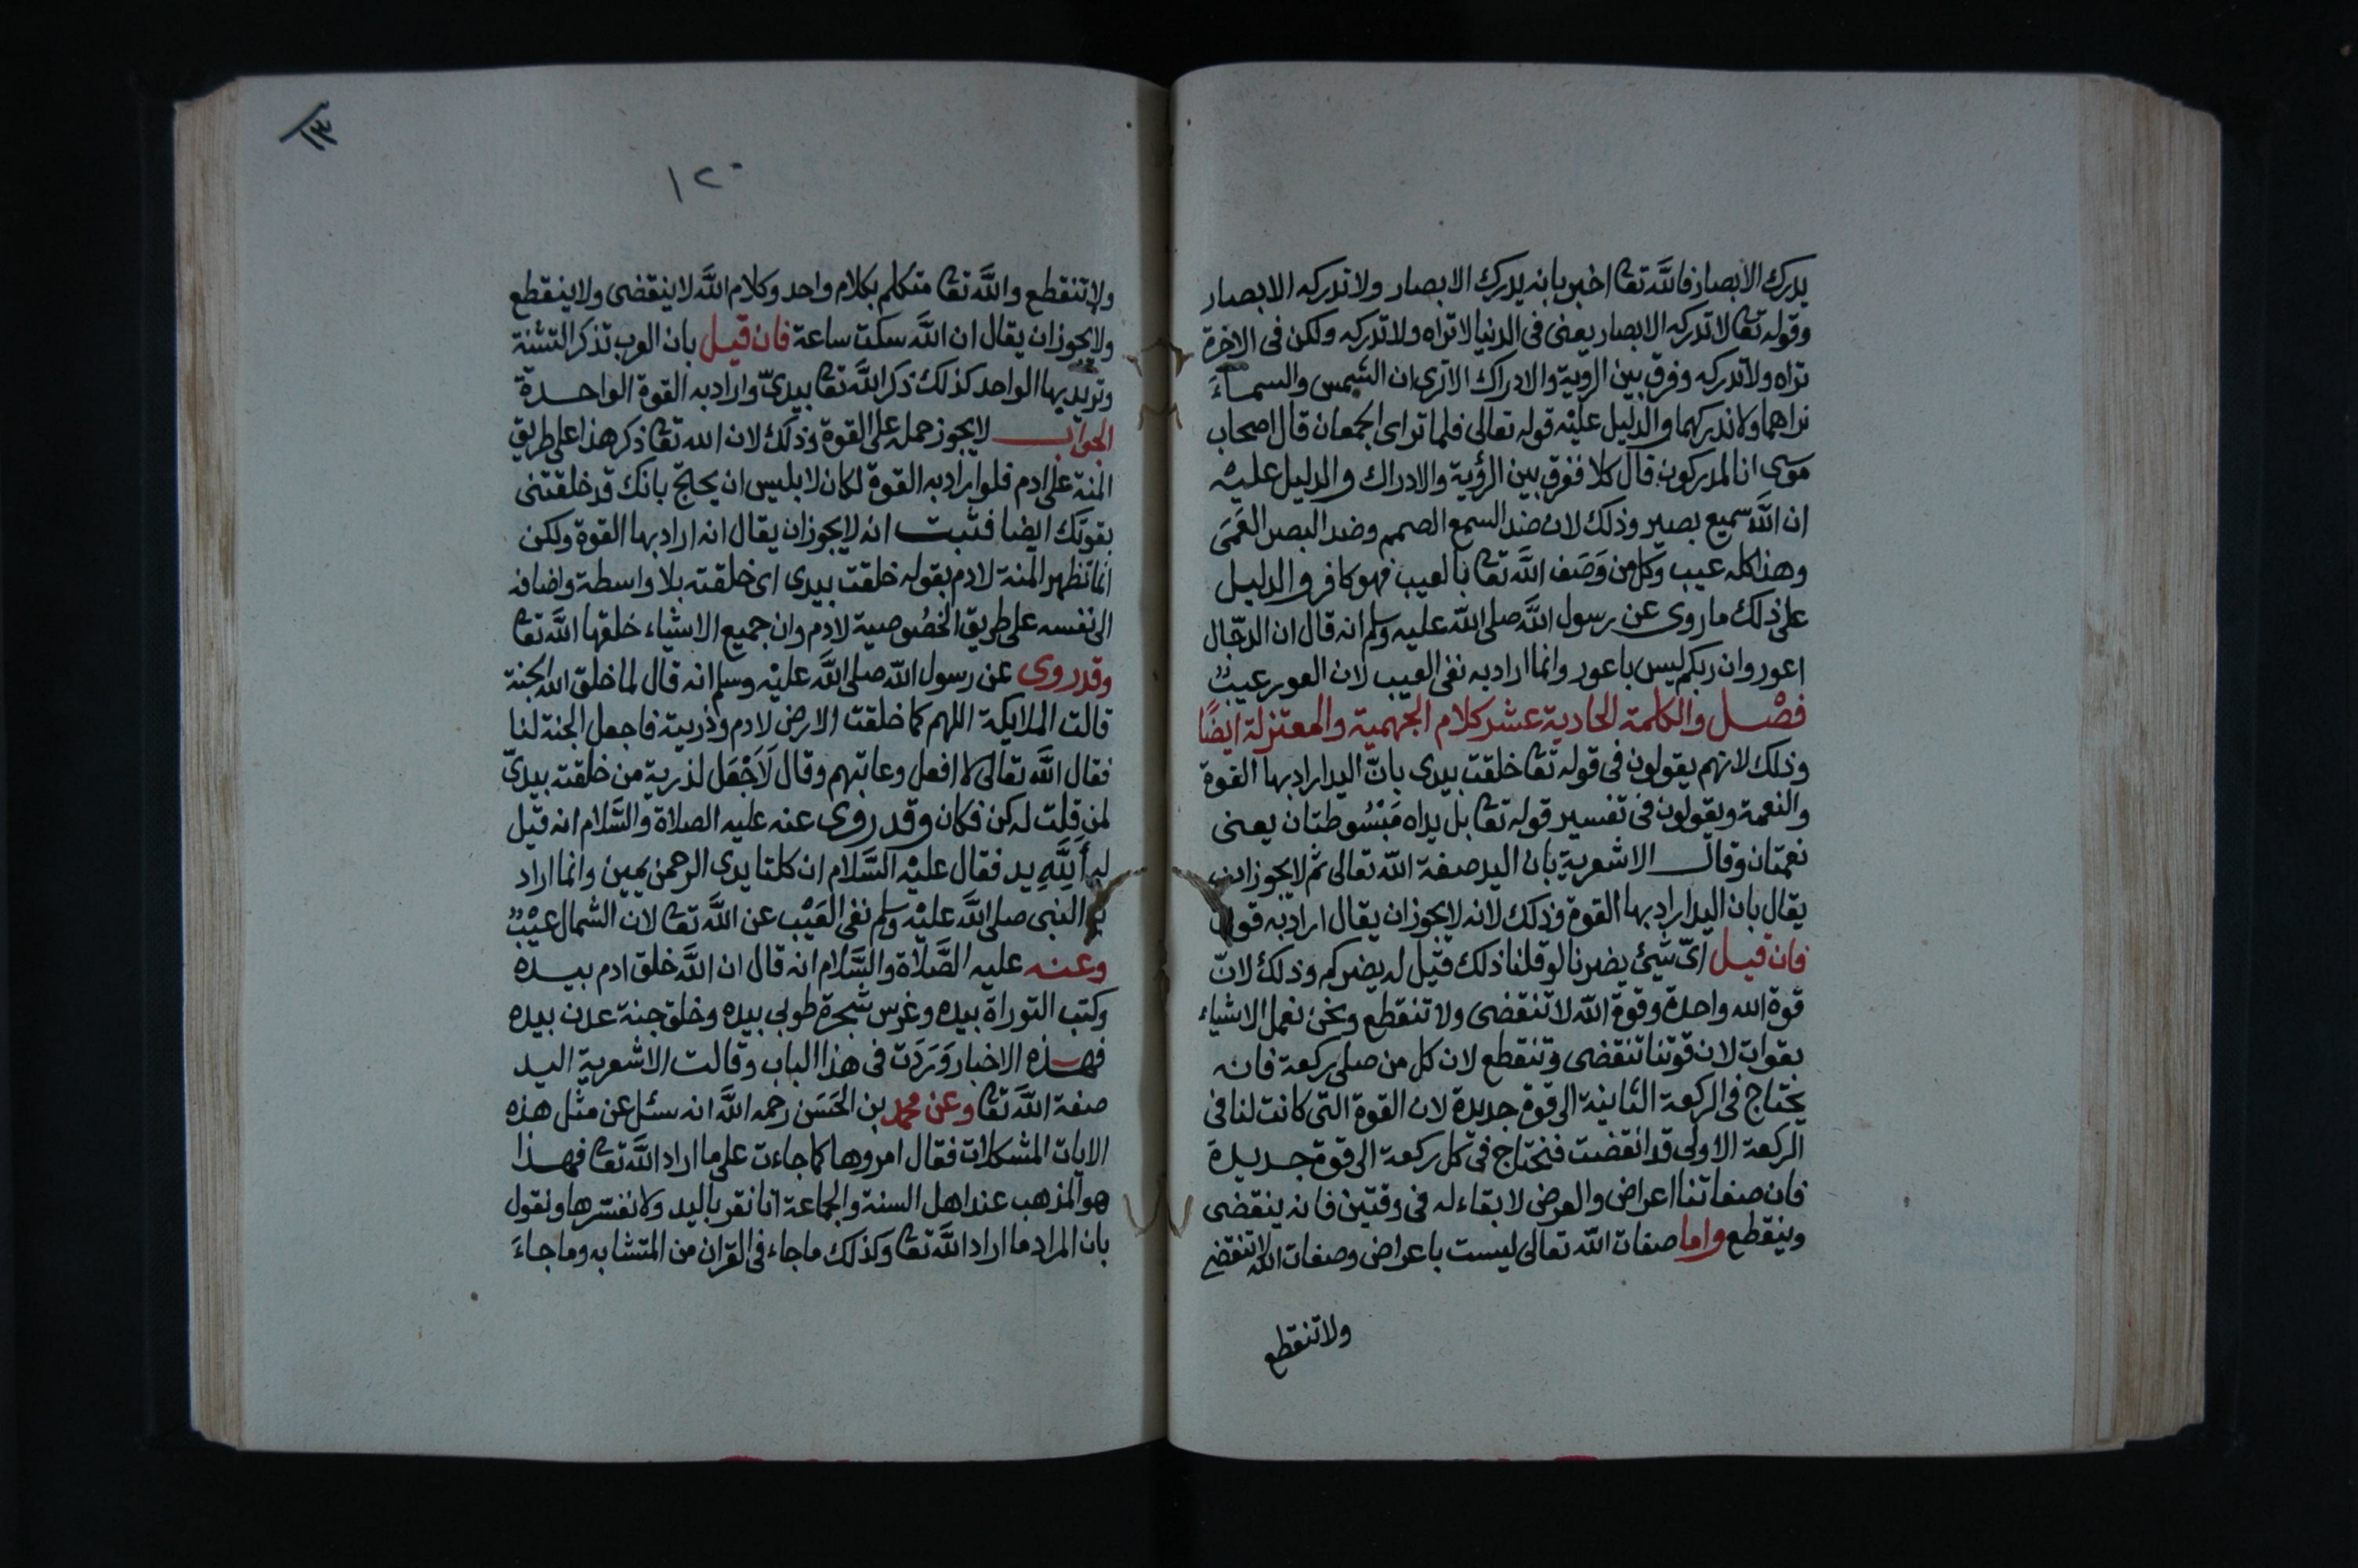 يدرك الابصار فالله تعا اخبر بانه يدرك الابصار ولا تدركه الابصار
وقوله تعا لا تدركه الابصار يعنى فى الدنيا لا تراه ولا تدركه ولكن فى الاخرة
تراه ولا تدركه وفرق بين الروية والادراك الا ترى ان الشمس والسماء
نراهما ولا ندركهما والدليل عليه قوله تعالى فلما تراى الجمعان قال اصحاب
موسى انا لمدركون قال كلا ففرق بين الرؤية والادراك والدليل عليه
ان الله سميع بصير وذلك لان ضد السمع الصمم وضد البصر العَمَى
وهذا كله عيب وكل من وَصَف الله تعا بالعيب فهو كافر والدليل
على ذلك ما روى عن رسول الله صلى الله عليه وسلم انه قال ان الدجّال
اعور وان ربكم ليس باعور وانما اراد به نفى العيب لان العور عيبٌ
فصْل والكلمة الحادية عشر كلام الجهمية والمعتزلة ايضًا
وذلك لانهم يقولون فى قوله تعا خلقت بيدى بانّ اليد اراد بها القوة
والنعمة ويقولون فى تفسير قوله تعا بل يداه مَبْسُوطتان يعنى
نعمتان وقال الاشعرية بان اليد صفة الله تعالى ثم لا يجوز ان
يقال بان اليد اراد بها القوة وذلك لانه لا يجوز ان يقال اراد به قوات
فان قيل اىّ شئ يضرنا لو قلنا ذلك قيل له يضركم وذلك لانّ
قوة الله واحدة وقوة الله لا تنقضى ولا تنقطع ونحن نعمل الاشياء
بقوات لان قوتنا تنقضى وتنقطع لان كل من صلى ركعة فانه
يحتاج فى الركعة الثانية الى قوة جديدة لان القوة التى كانت لنا فى
الركعة الاولى قد انقضت فنحتاج فى كل ركعة الى قوة جديدة
فان صفاتنا اعراض والعرض لا بقاء له فى وقتين فانه ينقضى
وينقطع واما صفات الله تعالى ليست باعراض وصفات الله لا تنقضى
ولا تنقطع
١٢٠
ولا تنقطع والله تعا متكلم بكلام واحد وكلام الله لا ينقضى ولا ينقطع
ولا يجوز ان يقال ان الله سكت ساعة فان قيل بان العرب تذكر التثنية
وتريد بها الواحد كذلك ذكر الله تعا بيدىّ واراد به القوة الواحدة
الجواب لا يجوز حمله على القوة وذلك لان الله تعا ذكر هذا على طريق
المنة على ادم فلو اراد به القوة لكان لابليس ان يحتج بانك قد خلقتنى
بقوتك ايضا فثبت انه لا يجوز ان يقال انه اراد بها القوة ولكن
انما تظهر المنة لادم بقوله خلقت بيدى اى خلقته بلا واسطة واضافه
الى نفسه على طريق الخصُوصية لادم وان جميع الاشياء خلقها الله تعا
وقد روى عن رسول الله صلى الله عليه وسلم انه قال لما خلق الله الجنة
قالت الملايكة اللهم كما خلقت الارض لادم وذريته فاجعل الجنة لنا
فقال الله تعالى لا افعل وعاتبهم وقال لَا اَجْعَل لذرية من خلقته بيدىّ
لمن قلت له كن فكان وقد روى عنه عليه الصلاة والسَّلام انه قيل
له أَلِلَّهِ يد فقال عليه السَّلام ان كلتا يدى الرحمن يمين وانما اراد
به النبى صلى الله عليه وسلم نفى العَيْب عن الله تعا لان الشمال عيْبٌ
وعنه عليه الصَّلاة والسَّلام انه قال ان الله خلق ادم بيده
وكتب التوراة بيده وغرس شجرة طوبى بيده وخلق جنة عدن بيده
فهذه الاخبار وَرَدَت فى هذا الباب وقالت الاشعرية اليد
صفة الله تعا وعن محمد بن الحَسَن رحمه الله انه سئل عن مثل هذه
الايات المشكلات فقال امروها كما جاءت على ما اراد الله تعا فهذا
هو المذهب عند اهل السنة والجماعة انا نقر باليد ولا نفسّرها ونقول
بان المراد ما اراد الله تعا وكذلك ما جاء فى القران من المتشابه وما جاءَ